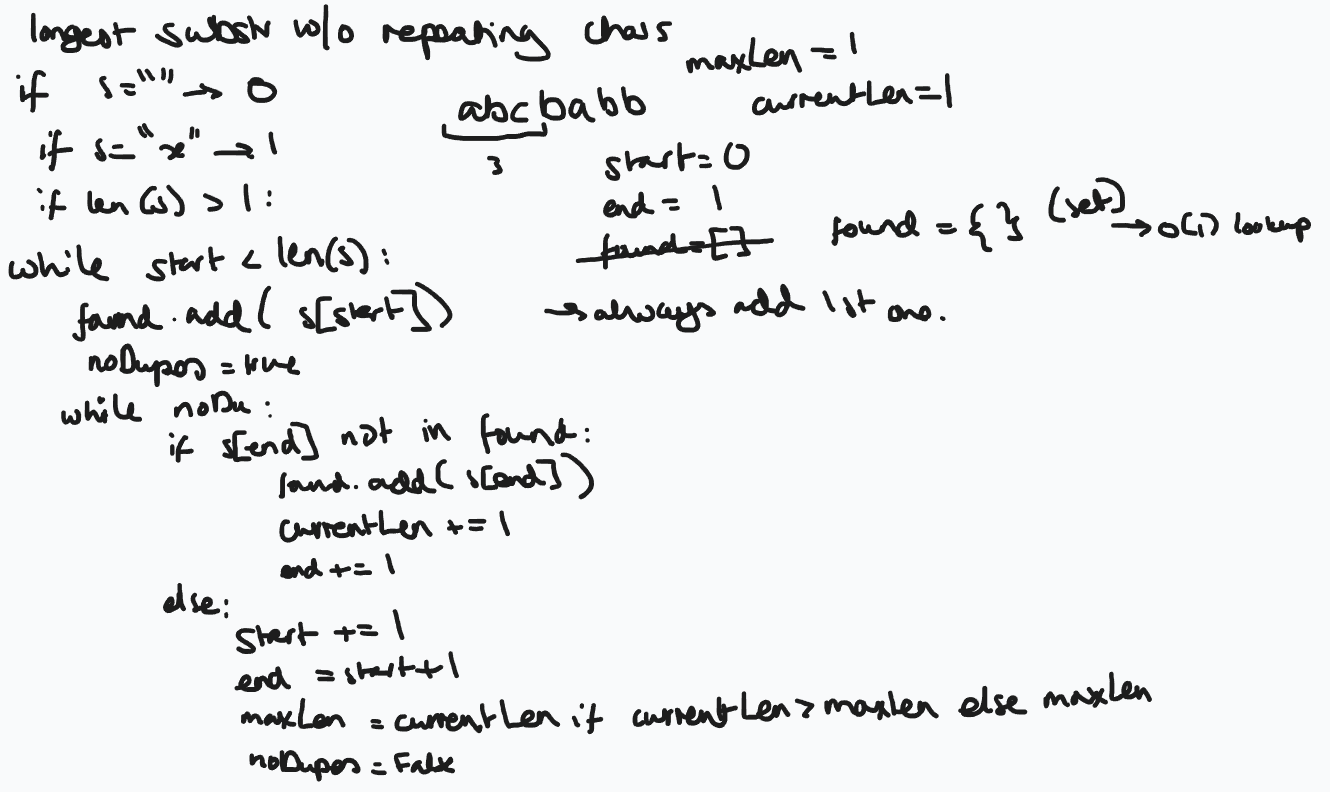 longest substr w/o repeating chars
maxLen = 1
if s="" → 0
currentLen=1
abcbabb
if s="x" → 1
3
start= 0
if len(s) > 1:
end = 1
found = { } (set) → O(1) lookup
found=[]
while start < len(s):
found.add( s[start]) → always add 1st one.
noDupes = true
while noDu:
if s[end] not in found:
found.add( s[end])
currentLen += 1
end += 1
else:
start += 1
end = start+1
maxLen = currentLen if currentLen > maxLen else maxLen
noDupes = False